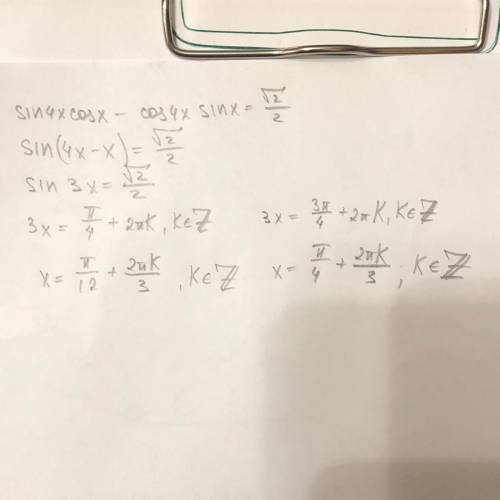 sin4xcosx - cos4x sinx = √2/2
sin(4x-x) = √2/2
sin 3x = √2/2
3x = π/4 + 2πK, K∈Z
3x = 3π/4 + 2πK, K∈Z
x = π/12 + 2πK/3, K∈Z
x = π/4 + 2πK/3; K∈Z